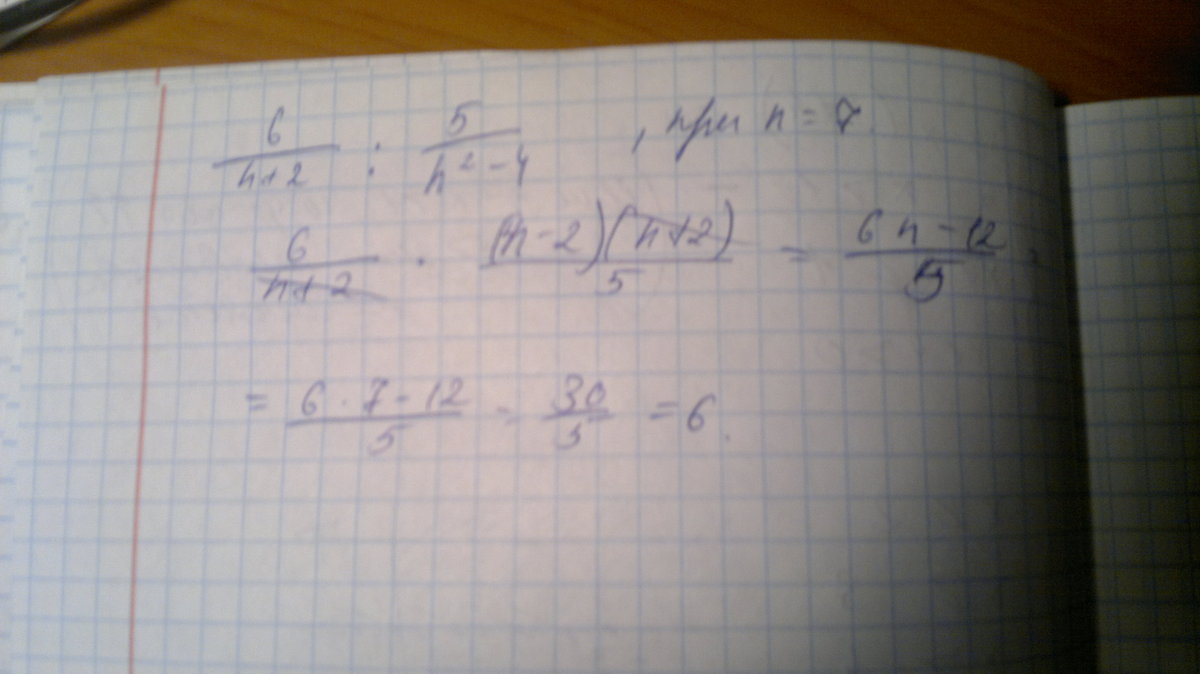 6/(n+2) : 5/(n² - 4) , при n = 7
6/(n+2) · (n-2)(n+2)/5 = (6n - 12)/5 =
= (6·7 - 12)/5 = 30/5 = 6.